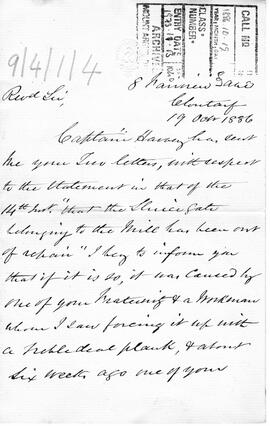 CALL NO
1886·10·19
CLASS
NUMBER
ENTRY DATE
ARCHIVE
9/4/1/4
8 Lane
Clontarf
19 Octr 1886
Revd Sir,
Captain Harvey has sent
me your two letters, with respect
to the Statement in that of the
14th Inst. "that the Sluice gate
belonging to the Mill has been out
of repair" I beg to inform you
that if it is so, it was caused by
one of your Fraternity & a Workman
whom I saw forcing it up with
a treble deal plank, & about
six weeks ago one of your